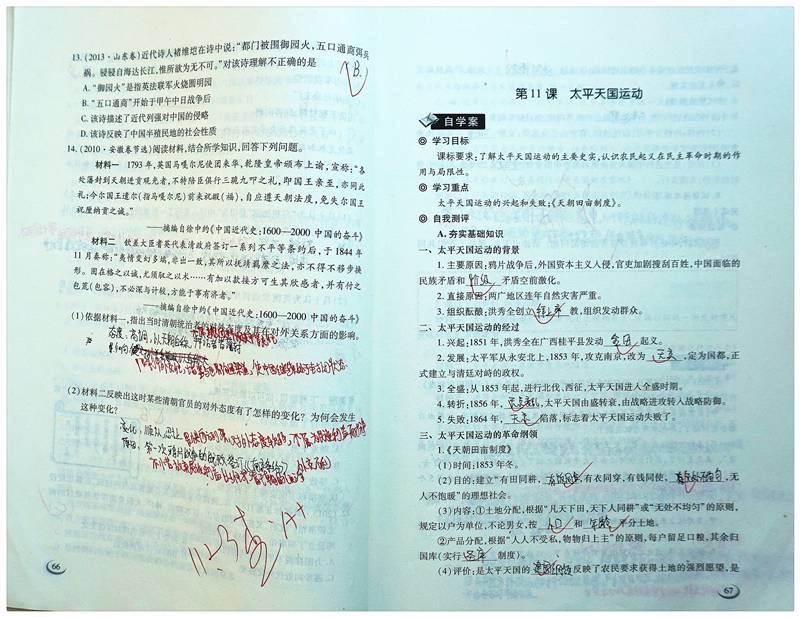 13.(2013·山东卷)近代诗人褚维垲在诗中说:“都门被围御园火,五口通商弭兵
祸。骎骎自海达长江,惟所欲为无不可。”对该诗理解不正确的是
(B.)
A.“御园火”是指英法联军火烧圆明园
B.“五口通商”开始于甲午中日战争后
C.该诗描述了近代列强对中国的侵略
D.该诗反映了中国半殖民地的社会性质
14.(2010·安徽卷节选)阅读材料,结合所学知识,回答下列问题。
材料一 1793年,英国马嘎尔尼使团来华,乾隆皇帝颁布上谕,宣称:“各
处藩封到天朝进贡观光者,不特陪臣俱行三跪九叩之礼,即国王亲至,亦同此
礼;今尔国王遣尔(指马嘎尔尼)前来祝嘏(福),自应遵天朝法度,免失尔国王
祝厘纳贡之诚。”
——摘编自徐中约《中国近代史:1600—2000 中国的奋斗》
材料二 钦差大臣耆英代表清政府签订一系列不平等条约后,于1844年
11月奏称:“夷情变幻多端,非出一致,其所以抚绥羁縻之法,亦不得不移步换
形。固在格之以诚,尤须驭之以术……有加以款接方可生其欣感者,并有付之
包荒(包容),不必深与计较,方能于事有济者。”
——摘编自徐中约《中国近代史:1600—2000 中国的奋斗》
(1)依据材料一,指出当时清朝统治者的对外态度及其在对外关系方面的影响。
(2)材料二反映出这时某些清朝官员的对外态度有了怎样的变化?为何会发生
这种变化?
11.23 A++
66
第11课 太平天国运动
自学案
学习目标
课标要求:了解太平天国运动的主要史实,认识农民起义在民主革命时期的作
用与局限性。
学习重点
太平天国运动的兴起和失败;《天朝田亩制度》。
自我测评
A.夯实基础知识
一、太平天国运动的背景
1.主要原因:鸦片战争后,外国资本主义入侵,官吏加剧搜刮百姓,中国面临的
民族矛盾和 阶级 矛盾空前激化。
2.直接原因:两广地区连年自然灾害严重。
3.组织酝酿:洪秀全创立 拜上帝 教,组织发动群众。
二、太平天国运动的经过
1.兴起:1851年,洪秀全在广西桂平县发动 金田 起义。
2.发展:太平军从永安北上,1853年,攻克南京,改为 天京 ,定为国都,正
式建立与清廷对峙的政权。
3.全盛:从1853年起,进行北伐、西征,太平天国进入全盛时期。
4.转折:1856年, 天京变乱 ,太平天国由盛转衰,由战略进攻转入战略防御。
5.失败:1864年, 天京 陷落,标志着太平天国运动失败了。
三、太平天国运动的革命纲领
1.《天朝田亩制度》
(1)时间:1853年冬。
(2)目的:建立“有田同耕, 有饭同食 ,有衣同穿,有钱同使, 无处不均匀 ,无
人不饱暖”的理想社会。
(3)内容:①土地分配,根据“凡天下田,天下人同耕”或“无处不均匀”的原则,
规定以户为单位,不论男女,按 人口 和 年龄 平分土地。
②产品分配,根据“人人不受私,物物归上主”的原则,每户留足口粮,其余归
国库(实行 圣库 制度)。
(4)评价:是太平天国的 建国纲领 反映了农民要求获得土地的强烈愿望,是
67